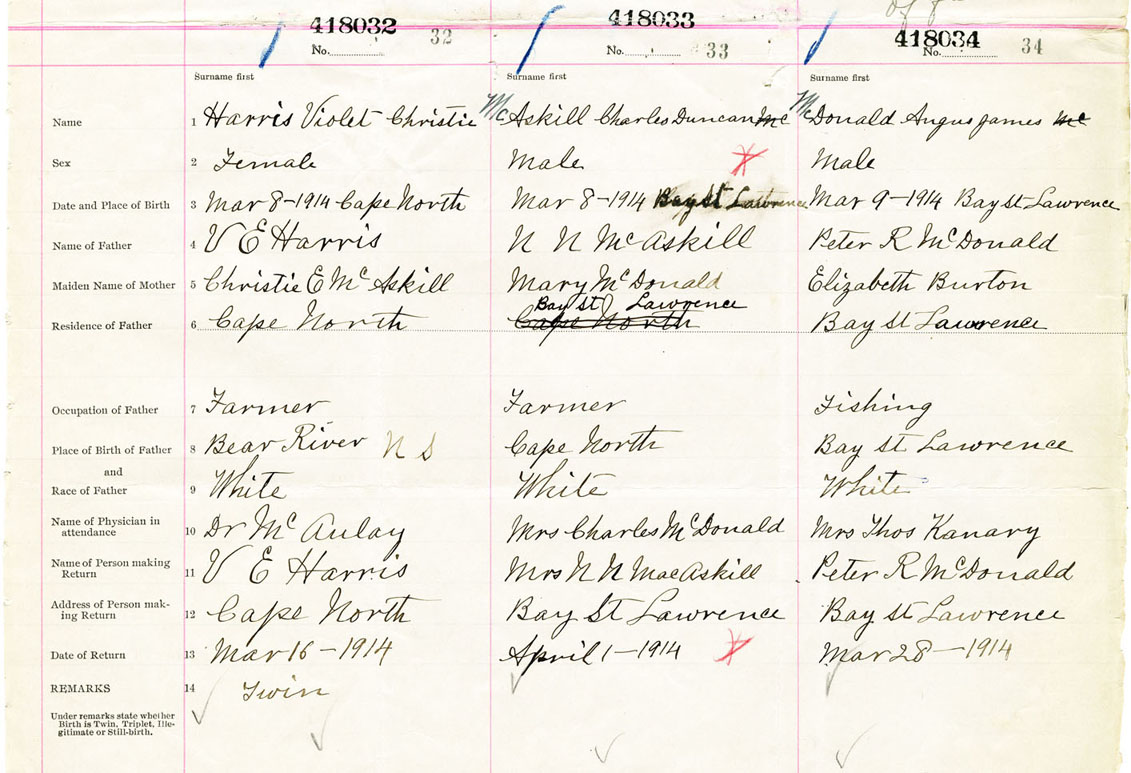 418032 32 418033 33 418034 34
No. No. No.
Surname first Surname first Surname first
Name 1 Harris Violet Christie Mc Askill Charles Duncan Mc Mc Donald Angus James Mc
Sex 2 Female Male Male
Date and Place of Birth 3 Mar 8-1914 Cape North Mar 8-1914 Bay St Lawrence Mar 9-1914 Bay St Lawrence
Name of Father 4 V E Harris N N McAskill Peter R McDonald
Maiden Name of Mother 5 Christie E McAskill Mary McDonald Elizabeth Burton
Bay St Lawrence
Residence of Father 6 Cape North Cape North Bay St Lawrence
Occupation of Father 7 Farmer Farmer Fishing
Place of Birth of Father 8 Bear River N S Cape North Bay St Lawrence
and
Race of Father 9 White White White
Name of Physician in
attendance 10 Dr McAulay Mrs Charles McDonald Mrs Thos Kanary
Name of Person making
Return 11 V E Harris Mrs N N MacAskill Peter R McDonald
Address of Person mak-
ing Return 12 Cape North Bay St Lawrence Bay St Lawrence
Date of Return 13 Mar 16-1914 April 1-1914 Mar 28-1914
REMARKS 14 Twin
Under remarks state whether
Birth is Twin, Triplet, Ille-
gitimate or Still-birth.